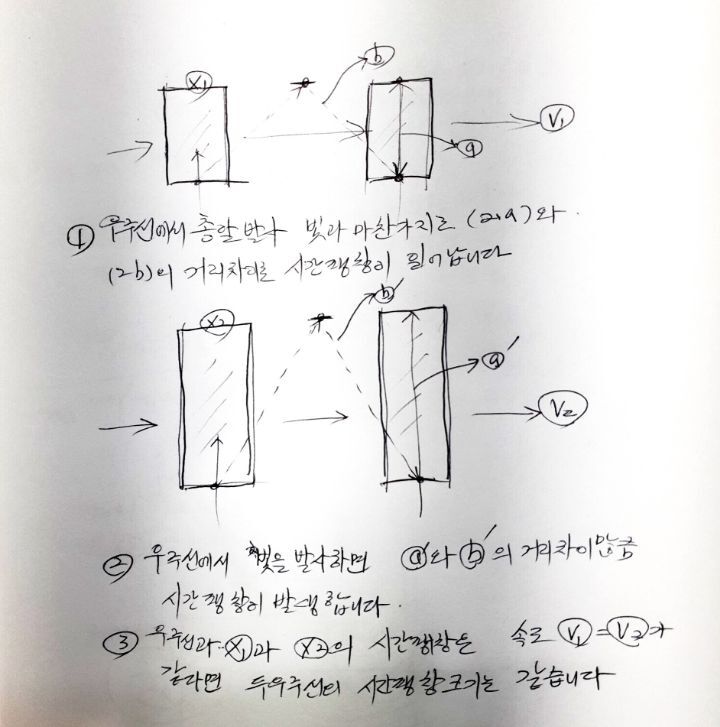 X1
b
V1
a
① 우주선에서 총알 발사 빛과 마찬가지로 (2a)와
(2b)의 거리차이로 시간팽창이 일어납니다
X2
b′
a′
V2
② 우주선에서 빛을 발사하면 a′와 b′의 거리차이만큼
시간팽창이 발생합니다.
③ 우주선과 X1과 X2의 시간팽창은 속도 V1=V2가
같다면 두우주선의 시간팽창크기는 같습니다